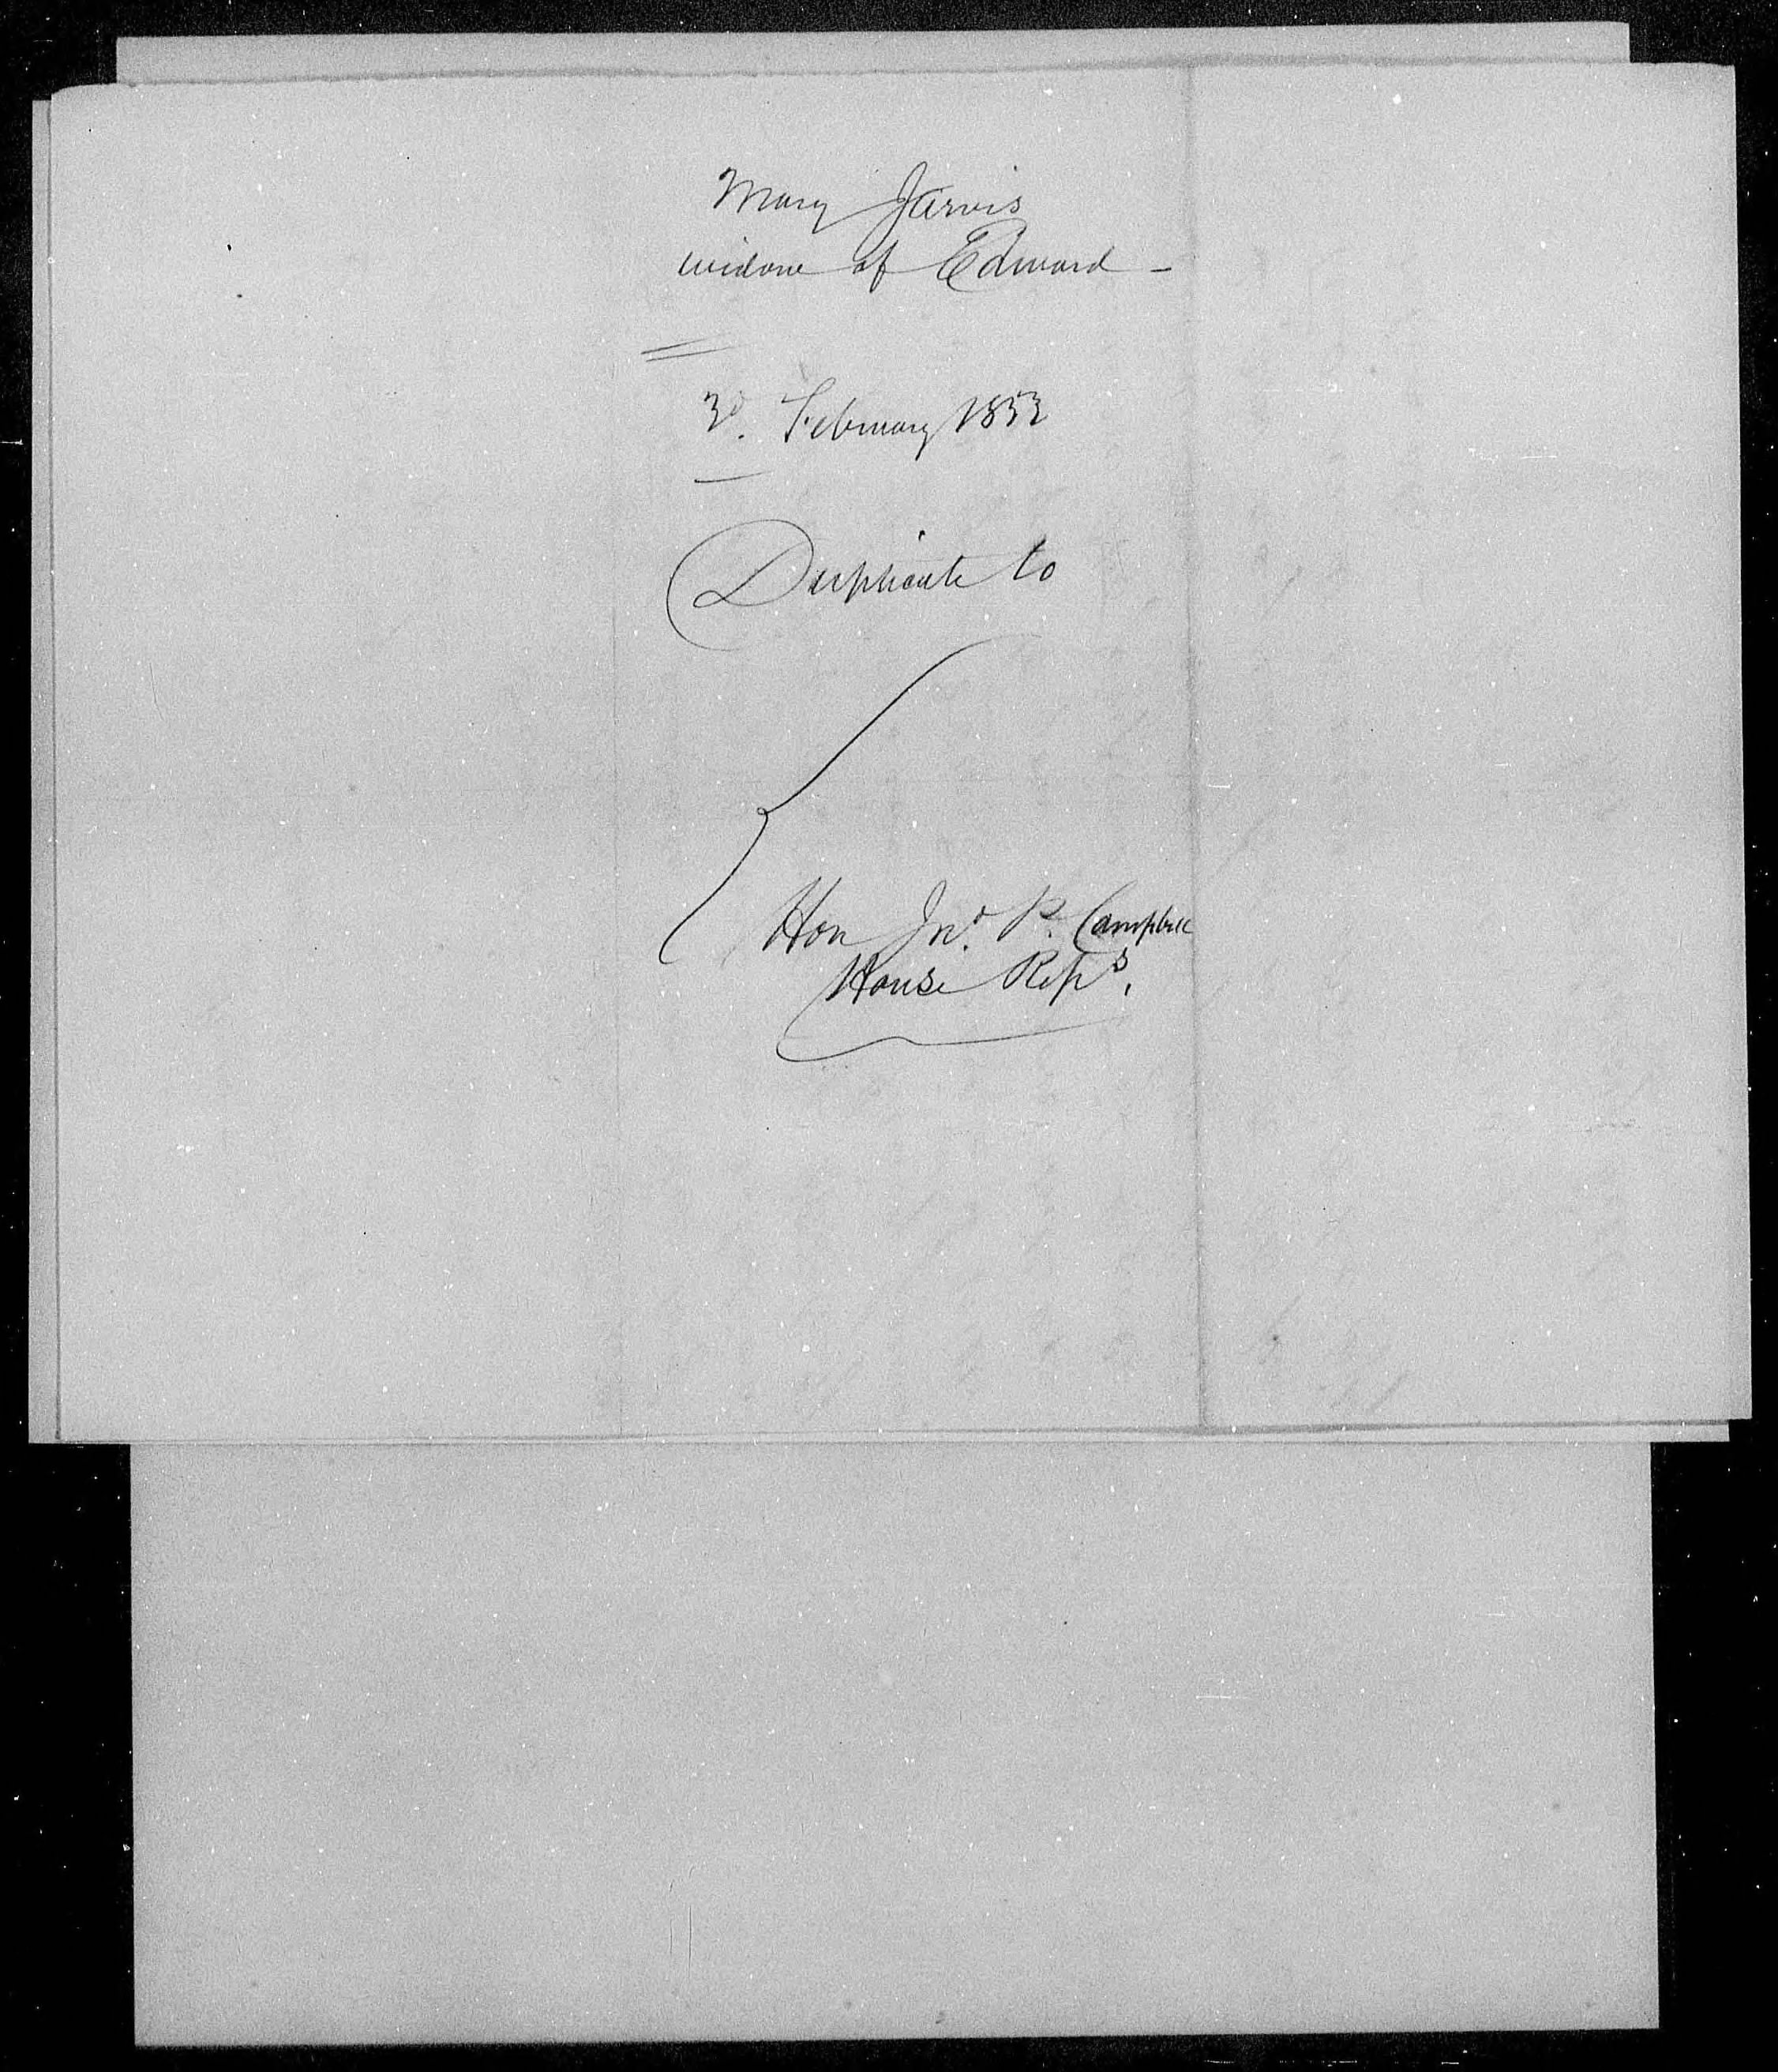 Mary Jarvis
widow of Edward -
3d. February 1853
Duplicate to
Hon Jno. P. Campbell
House Reps.